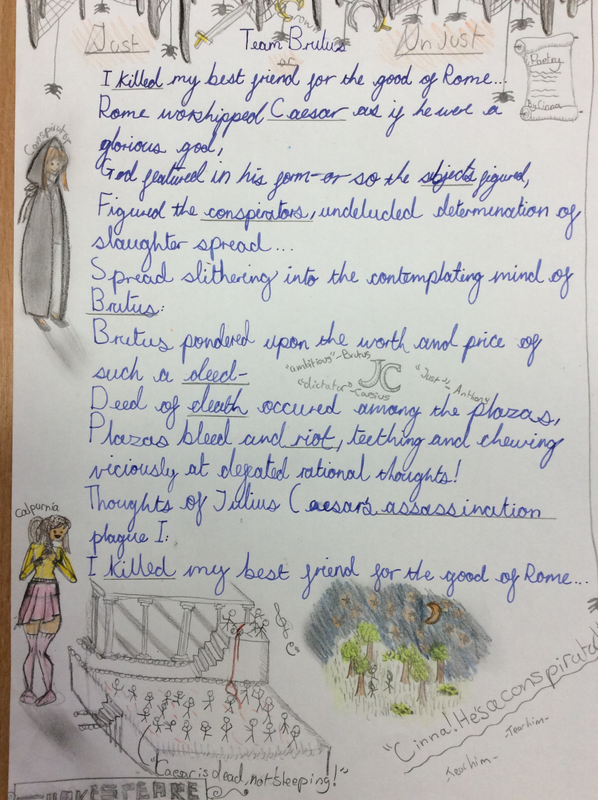 Just
Team Brutus
or
Unjust
Poetry
By Cinna
I killed my best friend for the good of Rome...
Rome worshipped Caesar as if he were a
glorious god,
God featured in his form-or so the subjects figured,
Figured the conspirators, undeluded determination of
slaughter spread...
Spread slithering into the contemplating mind of
Brutus:
Brutus pondered upon the worth and price of
such a deed-
Deed of death occured among the plazas,
Plazas bleed and riot, teething and chewing
viciously at defeated rational thoughts!
Thoughts of Julius Caesar's assassination
plague I:
I killed my best friend for the good of Rome...
Conspirator
"ambitious"-Brutus
"dictator"-Cassius
JC
"Just"- Anthony
Calpurnia
"Caesar is dead, not sleeping!"
"Cinna! He's a conspirator!"
-Tear him-
-Tear him-
SHAKESPEARE